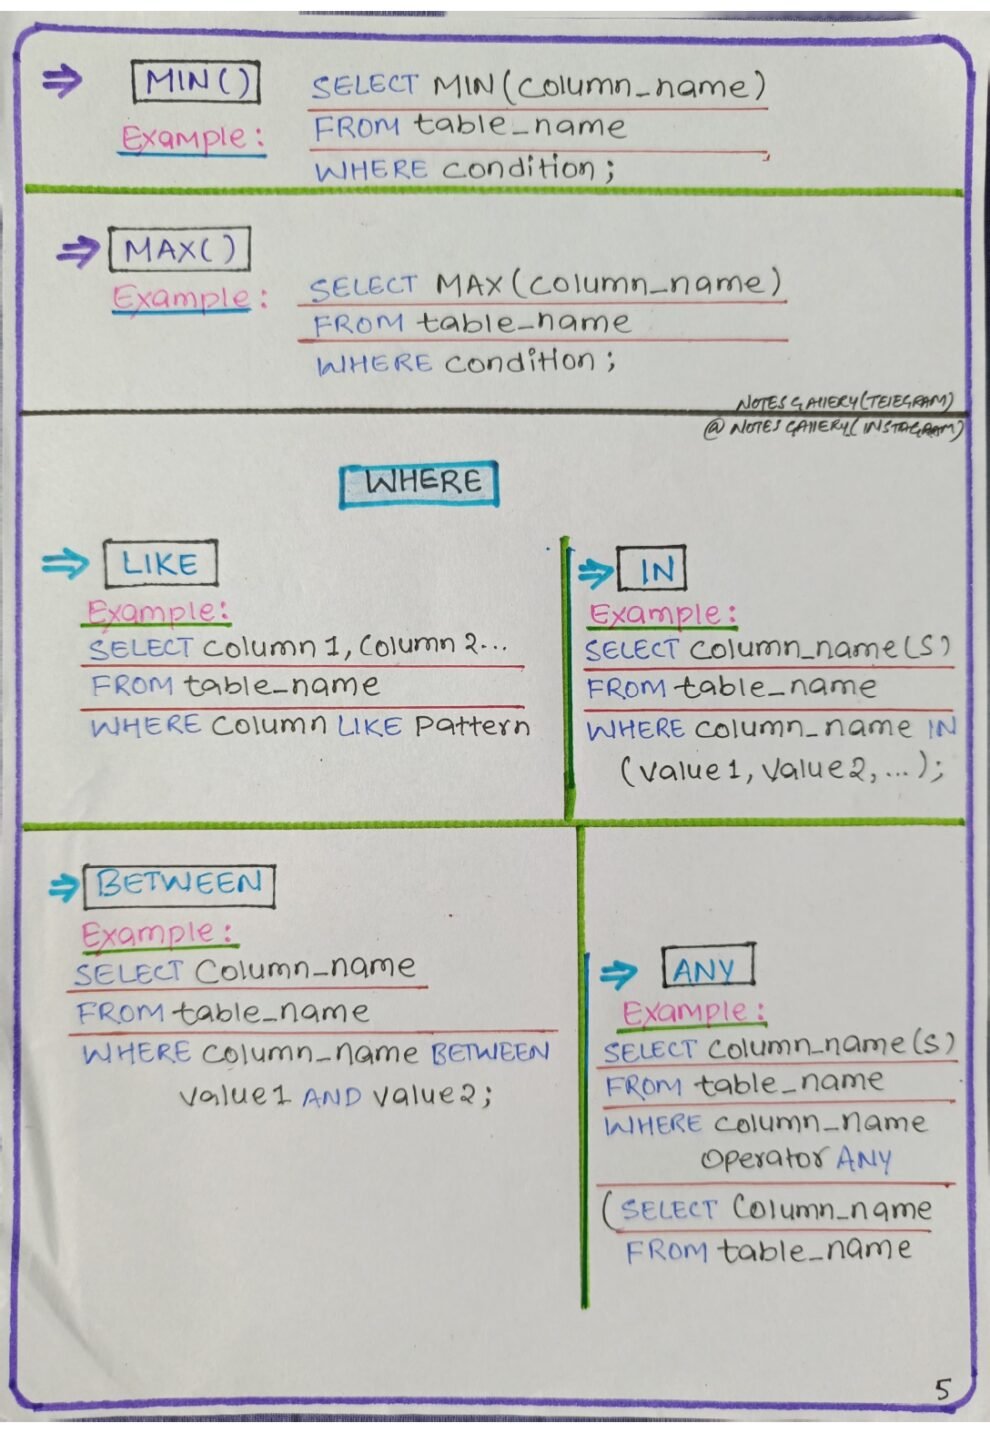 ⇒ MIN()
Example:
SELECT MIN(column_name)
FROM table_name
WHERE condition;
⇒ MAX()
Example:
SELECT MAX(column_name)
FROM table_name
WHERE condition;
NOTES GALLERY(TELEGRAM)
@ NOTES GALLERY(INSTAGRAM)
WHERE
⇒ LIKE
Example:
SELECT column1, column2...
FROM table_name
WHERE column LIKE pattern
⇒ IN
Example:
SELECT column_name(s)
FROM table_name
WHERE column_name IN
(value1, value2, ...);
⇒ BETWEEN
Example:
SELECT column_name
FROM table_name
WHERE column_name BETWEEN
value1 AND value2;
⇒ ANY
Example:
SELECT column_name(s)
FROM table_name
WHERE column_name
operator ANY
(SELECT column_name
FROM table_name
5